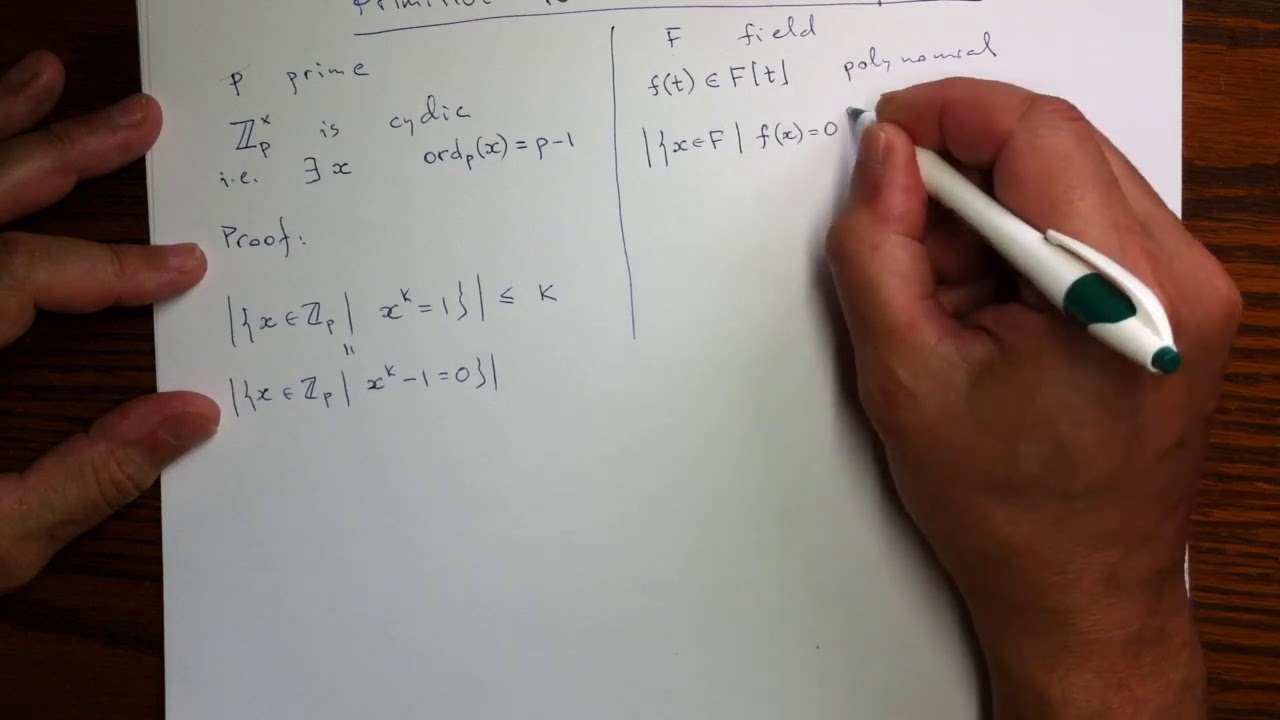 p prime
ℤₚˣ is cyclic
i.e. ∃ x ordₚ(x) = p-1
Proof:
|{x ∈ ℤₚ | xᵏ = 1}| ≤ k
=
|{x ∈ ℤₚ | xᵏ - 1 = 0}|
F field
f(t) ∈ F[t] polynomial
|{x ∈ F | f(x) = 0